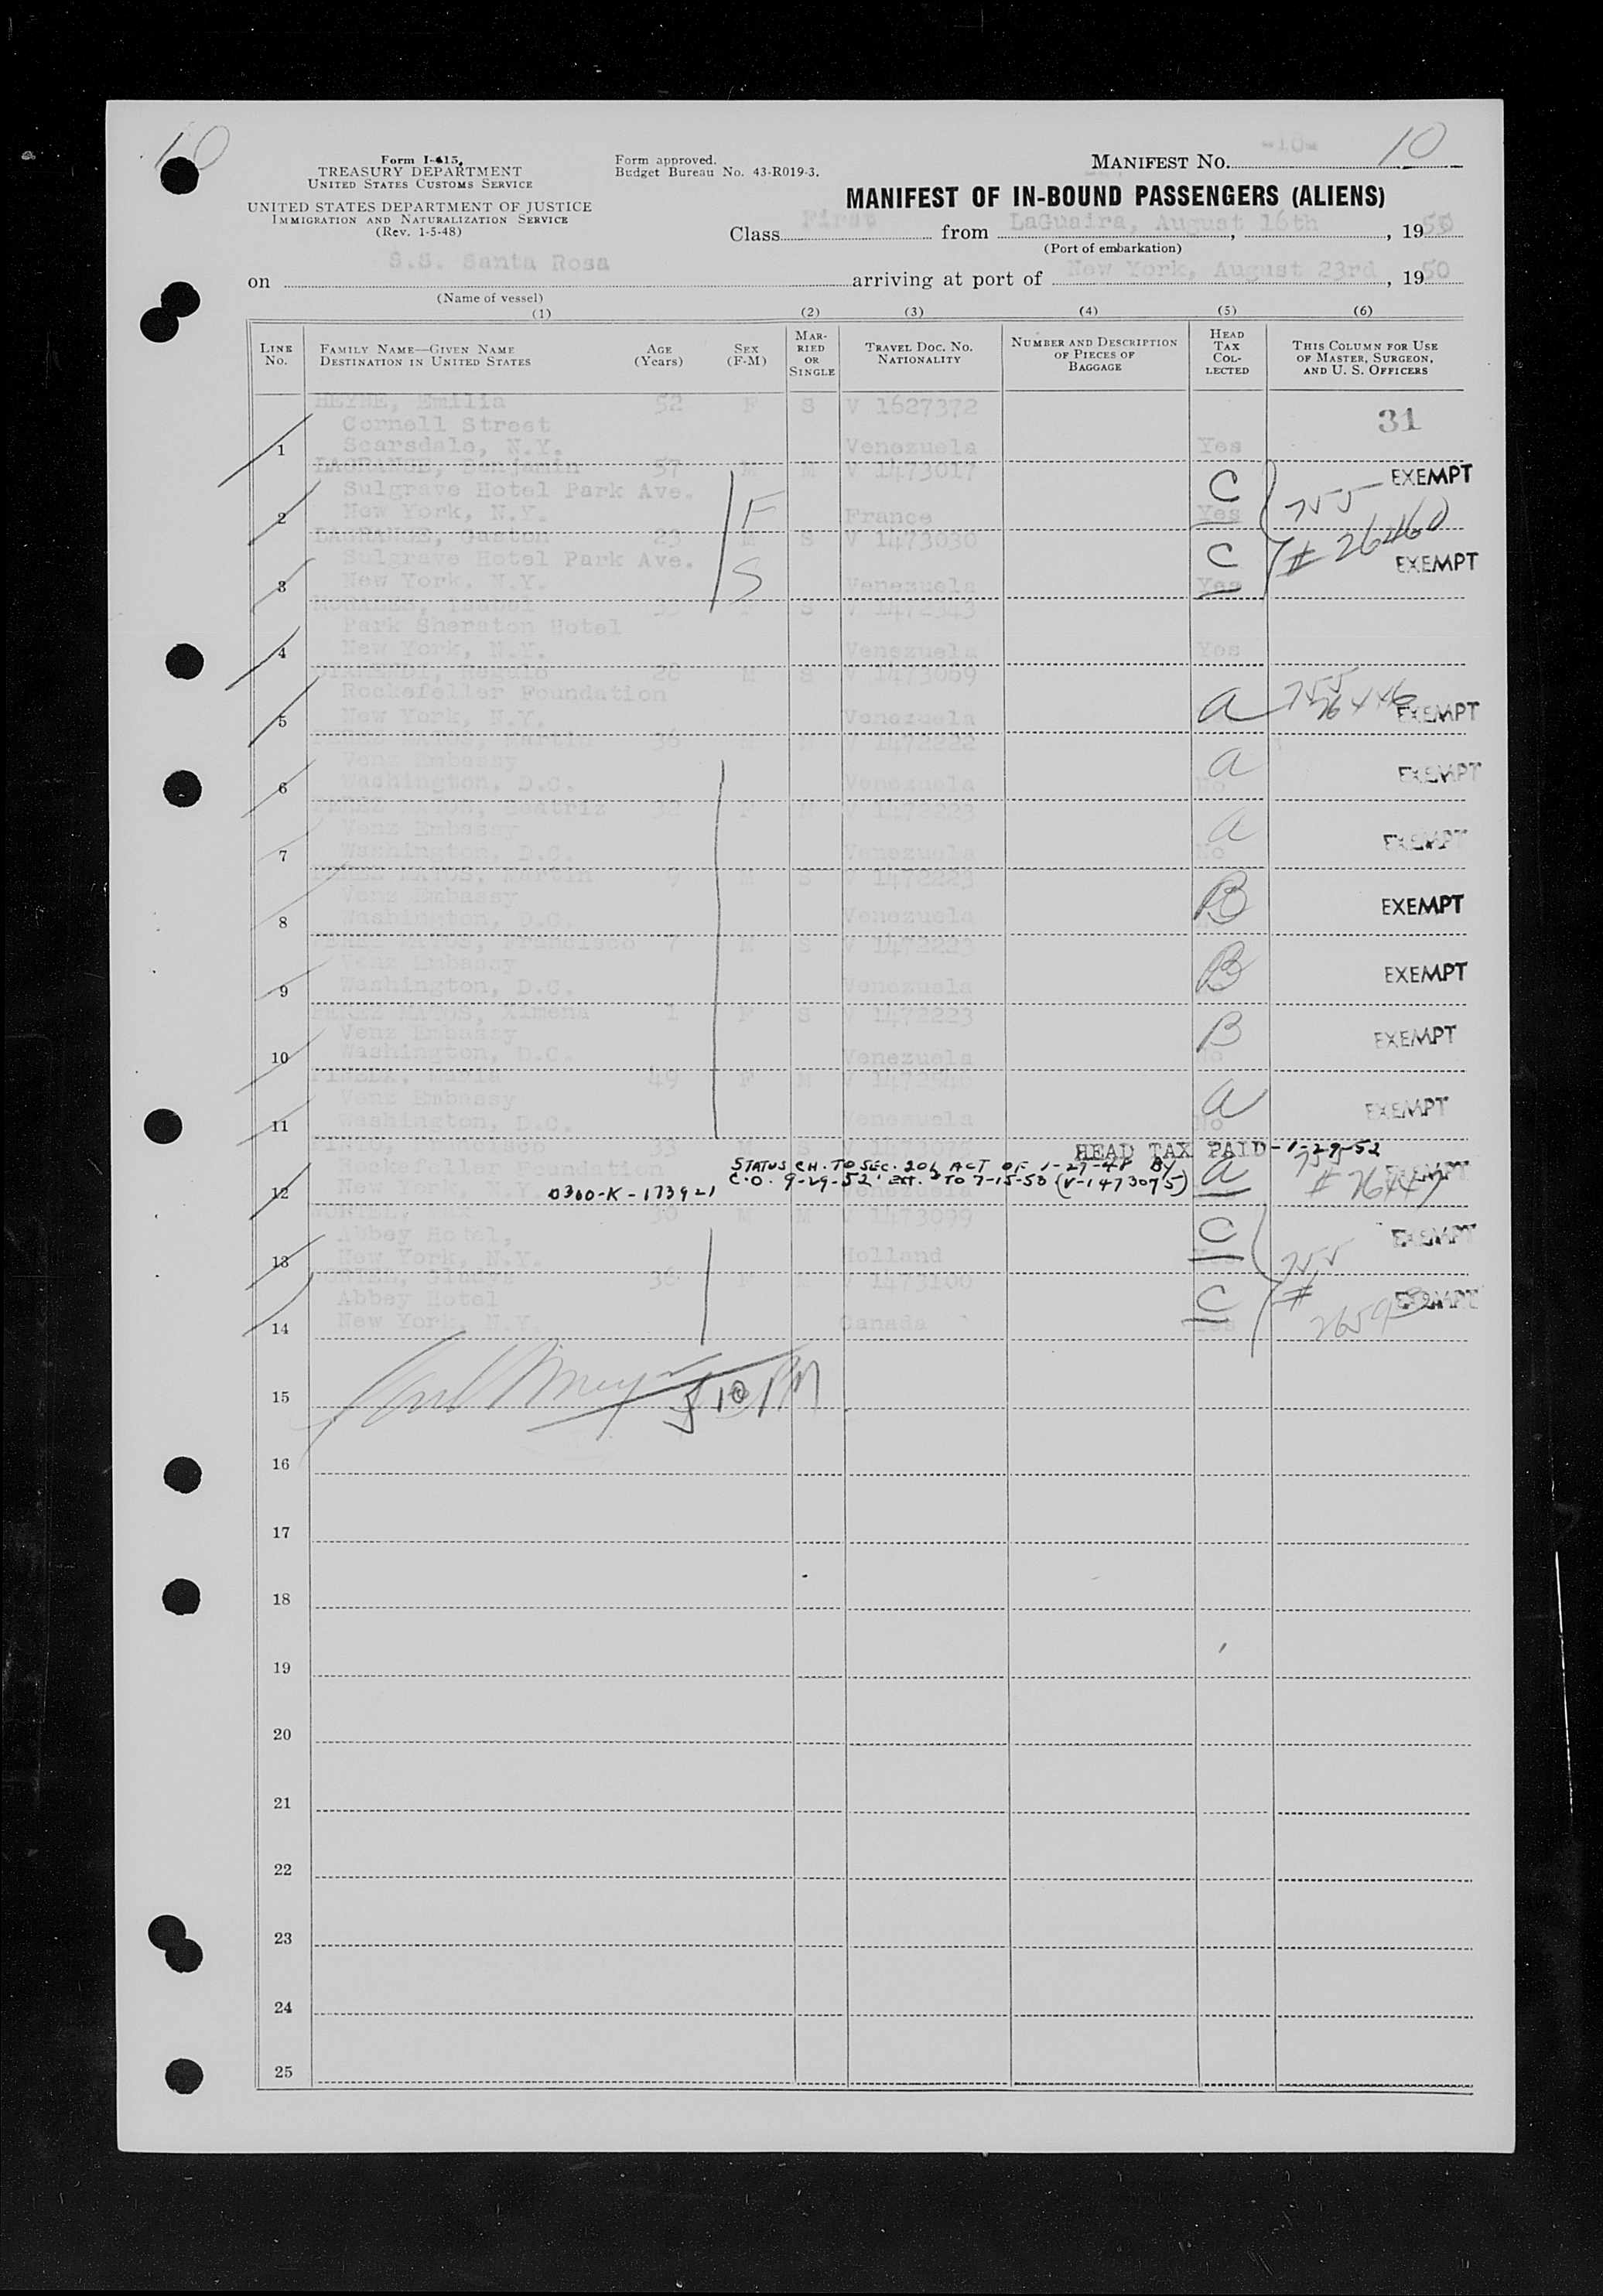 10
Form I-415,
TREASURY DEPARTMENT
UNITED STATES CUSTOMS SERVICE
UNITED STATES DEPARTMENT OF JUSTICE
IMMIGRATION AND NATURALIZATION SERVICE
(Rev. 1-5-48)
Form approved.
Budget Bureau No. 43-R019-3.
MANIFEST NO. -10- 10
MANIFEST OF IN-BOUND PASSENGERS (ALIENS)
Class First from LaGuaira, August 16th, 1950
(Port of embarkation)
on S.S. Santa Rosa arriving at port of New York, August 23rd, 1950
(Name of vessel)
(1) (2) (3) (4) (5) (6)
LINE No.
FAMILY NAME—GIVEN NAME
DESTINATION IN UNITED STATES
AGE (Years)
SEX (F-M)
MARRIED OR SINGLE
TRAVEL DOC. NO.
NATIONALITY
NUMBER AND DESCRIPTION OF PIECES OF BAGGAGE
HEAD TAX COLLECTED
THIS COLUMN FOR USE OF MASTER, SURGEON, AND U. S. OFFICERS
HEYNE, Emilia 52 F S V 1627372
Cornell Street 31
1 Scarsdale, N.Y. Venezuela Yes
LAGRANGE, Benjamin 57 M M V 1473017 EXEMPT
Sulgrave Hotel Park Ave. C 755
2 New York, N.Y. F France Yes
LAGRANGE, Gaston 23 M S V 1473030 # 26460
Sulgrave Hotel Park Ave. C EXEMPT
3 New York, N.Y. S Venezuela Yes
MORALES, Isabel S V 1472343
Park Sheraton Hotel
4 New York, N.Y. Venezuela Yes
28 M S V 1473069
Rockefeller Foundation a 755
5 New York, N.Y. Venezuela EXEMPT
PEREZ MATOS, Martin 36 M M V 1472222
Venz Embassy a EXEMPT
6 Washington, D.C. Venezuela No
PEREZ MATOS, Beatriz F M V 1472223
Venz Embassy a EXEMPT
7 Washington, D.C. Venezuela No
PEREZ MATOS, Martin 9 M S V 1472223
Venz Embassy B EXEMPT
8 Washington, D.C. Venezuela
PEREZ MATOS, Francisco 7 M S V 1472223
Venz Embassy B EXEMPT
9 Washington, D.C. Venezuela
PEREZ MATOS, Ximena 1 F S V 1472223
Venz Embassy B EXEMPT
10 Washington, D.C. Venezuela No
PINEDA, Maria 49 F M
Venz Embassy a EXEMPT
11 Washington, D.C. Venezuela No
PINTO, Francisco 33 M S HEAD TAX PAID - 1-29-52
Rockefeller Foundation STATUS CH. TO SEC. 201 ACT OF 1-27-48 BY a 755 EXEMPT
C.O. 9-29-52 EXT. TO 7-15-53 (V-1473075)
12 New York, N.Y. 0300-K-173921 Venezuela
30 M M V 1473099
Abbey Hotel, C EXEMPT
13 New York, N.Y. Holland 755
Gladys 36 F M V 1473100
Abbey Hotel C # EXEMPT
14 New York, N.Y. Canada Yes
15 5 10 PM
16
17
18
19
20
21
22
23
24
25